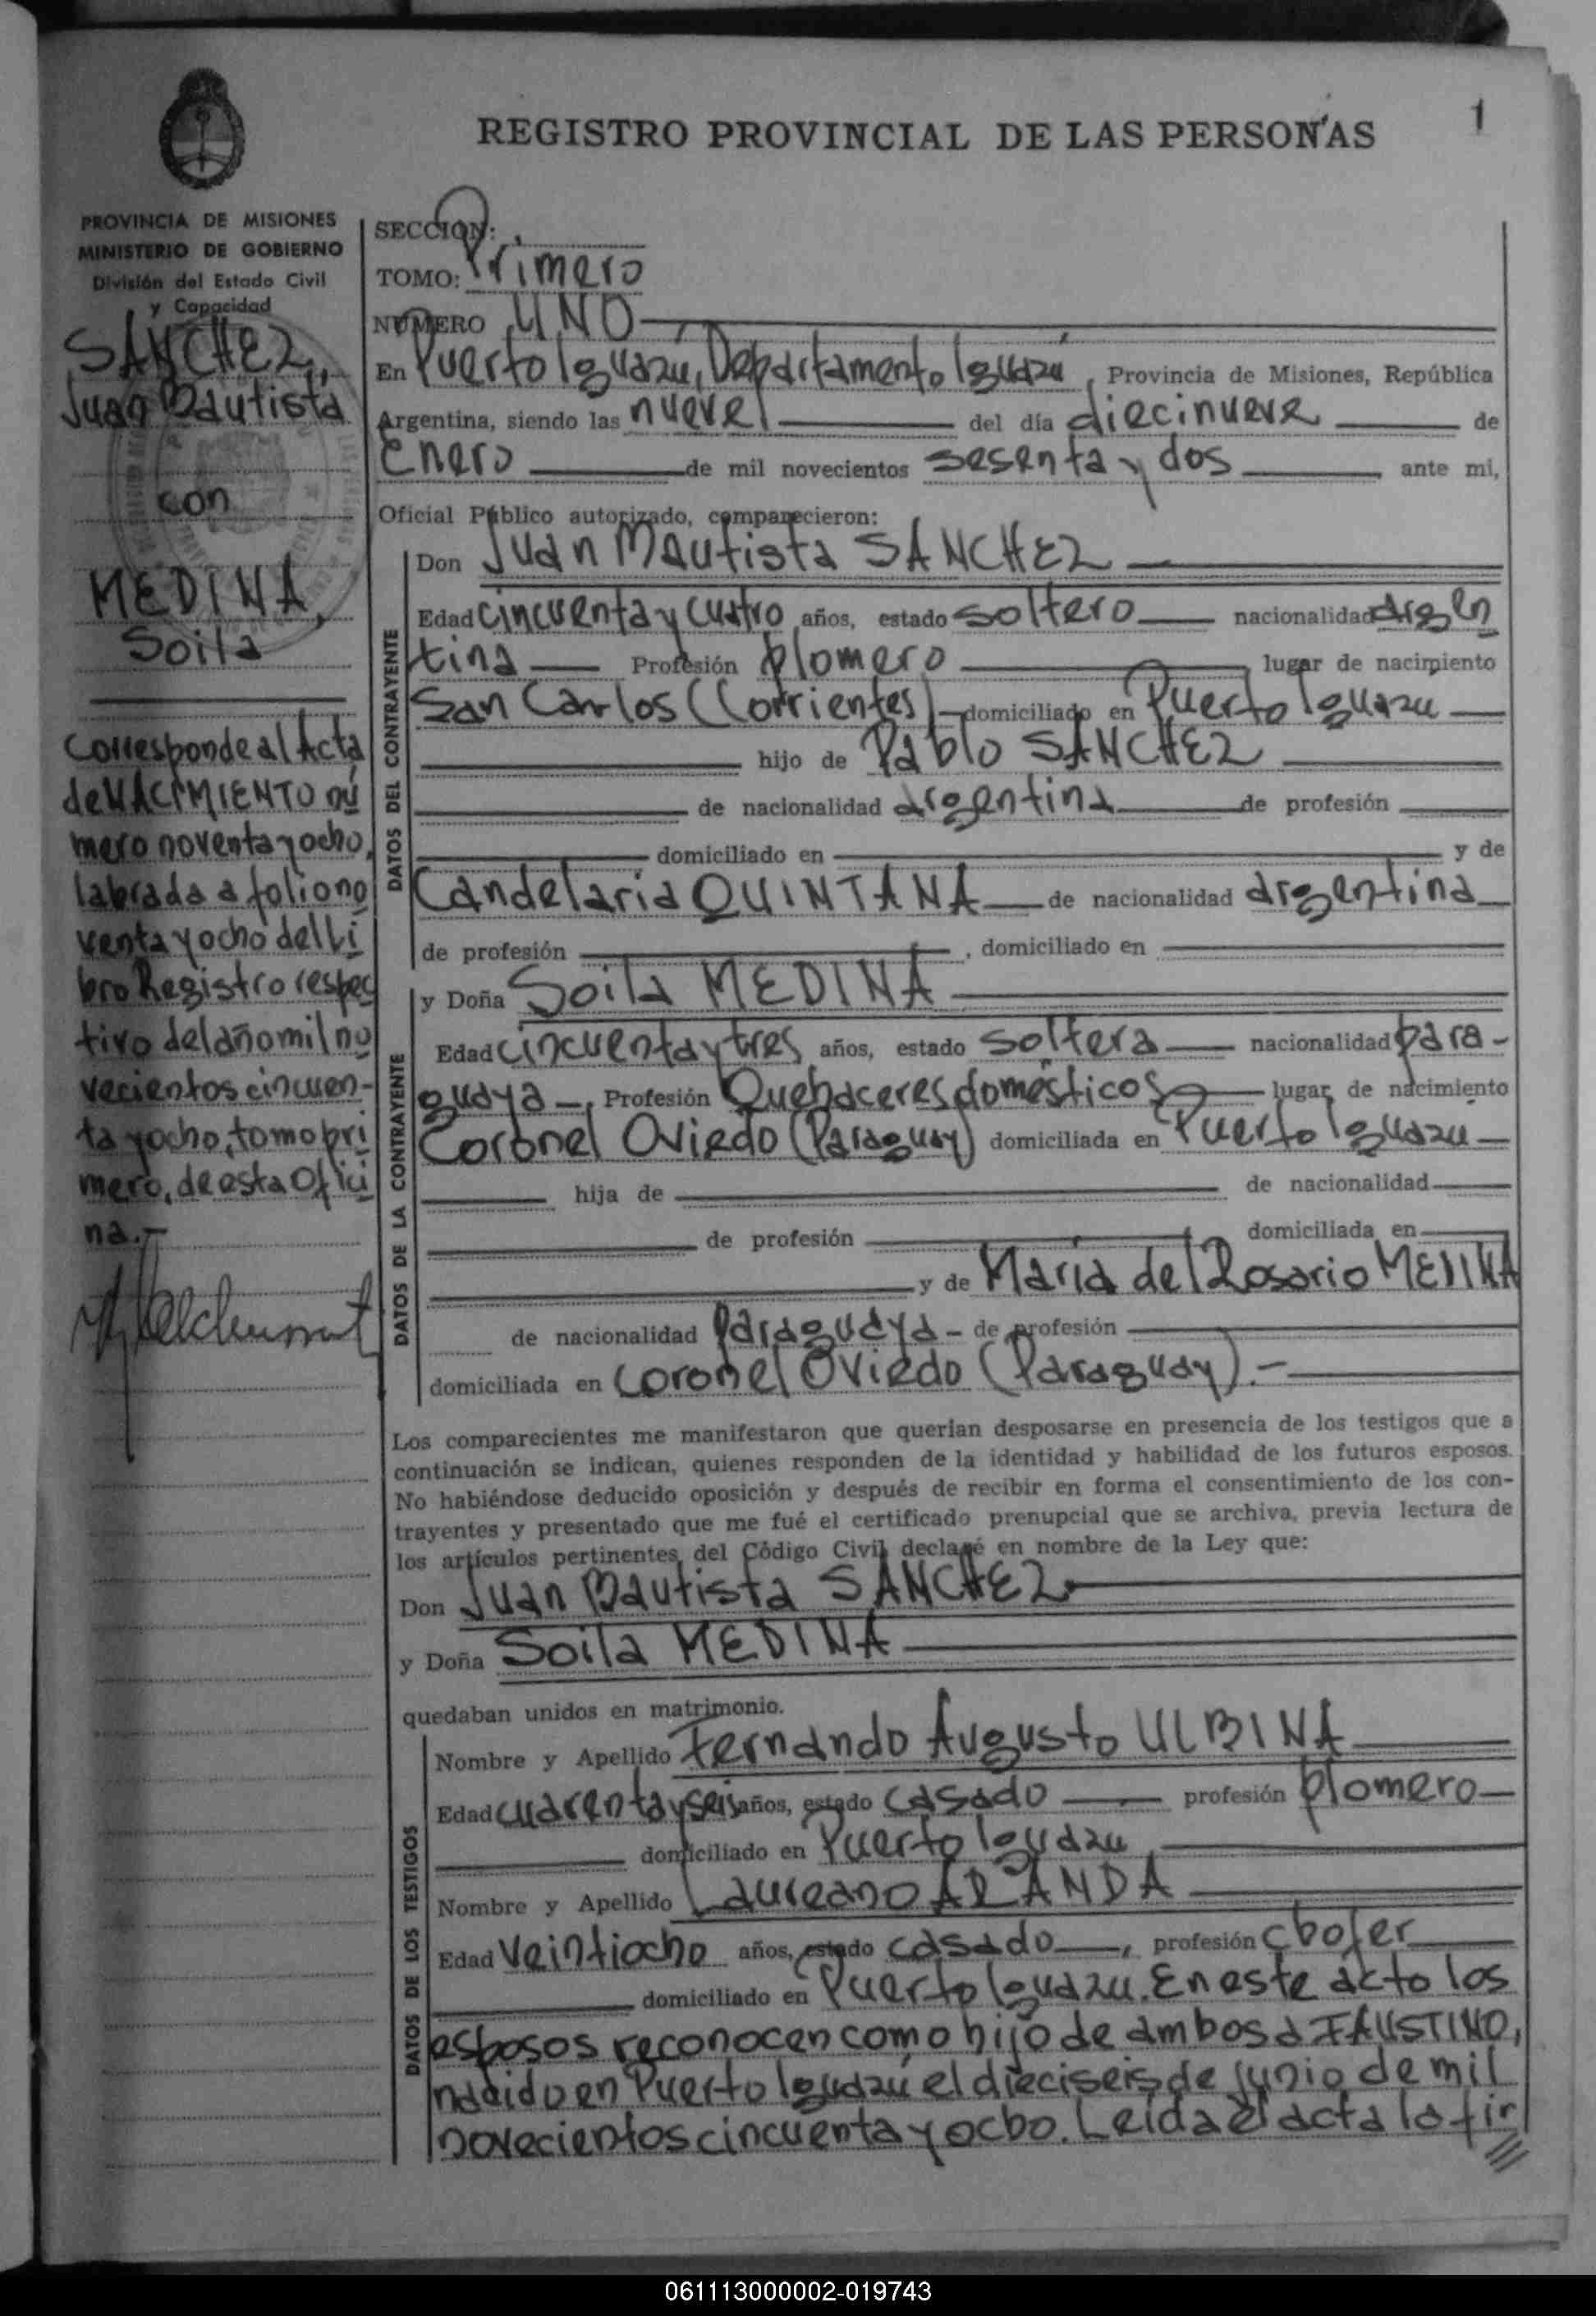 REGISTRO PROVINCIAL DE LAS PERSONAS
1
PROVINCIA DE MISIONES
MINISTERIO DE GOBIERNO
División del Estado Civil
y Capacidad
SANCHEZ,
Juan Bautista
con
MEDINA,
Soila
Corresponde al Acta
de NACIMIENTO nú
mero noventa y ocho,
labrada a folio no
venta y ocho del Li
bro Registro respec
tivo del año mil no
vecientos cincuen-
ta y ocho, tomo pri
mero, de esta Ofici
na.-
SECCION:
TOMO: Primero
NUMERO UNO
En Puerto Iguazú, Departamento Iguazú, Provincia de Misiones, República
Argentina, siendo las nueve del día diecinueve de
Enero de mil novecientos sesenta y dos ante mi,
Oficial Público autorizado, comparecieron:
DATOS DEL CONTRAYENTE
Don Juan Bautista SANCHEZ
Edad cincuenta y cuatro años, estado soltero nacionalidad argen
tina Profesión plomero lugar de nacimiento
San Carlos (Corrientes) domiciliado en Puerto Iguazu
hijo de Pablo SANCHEZ
de nacionalidad argentina de profesión
domiciliado en y de
Candelaria QUINTANA de nacionalidad argentina
de profesión , domiciliado en
DATOS DE LA CONTRAYENTE
y Doña Soila MEDINA
Edad cincuenta y tres años, estado soltera nacionalidad para-
guaya -, Profesión Quehaceres domésticos lugar de nacimiento
Coronel Oviedo (Paraguay) domiciliada en Puerto Iguazu
hija de de nacionalidad
de profesión domiciliada en
y de María del Rosario MEDINA
de nacionalidad Paraguaya - de profesión
domiciliada en Coronel Oviedo (Paraguay).-
Los comparecientes me manifestaron que querían desposarse en presencia de los testigos que a
continuación se indican, quienes responden de la identidad y habilidad de los futuros esposos.
No habiéndose deducido oposición y después de recibir en forma el consentimiento de los con-
trayentes y presentado que me fué el certificado prenupcial que se archiva, previa lectura de
los artículos pertinentes del Código Civil declaré en nombre de la Ley que:
Don Juan Bautista SANCHEZ
y Doña Soila MEDINA
quedaban unidos en matrimonio.
DATOS DE LOS TESTIGOS
Nombre y Apellido Fernando Augusto ULBINA
Edad cuarenta y seis años, estado casado profesión plomero
domiciliado en Puerto Iguazu
Nombre y Apellido Laureano ARANDA
Edad veintiocho años, estado casado, profesión chofer
domiciliado en Puerto Iguazu. En este acto los
esposos reconocen como hijo de ambos a FAUSTINO,
nacido en Puerto Iguazú el dieciseis de junio de mil
novecientos cincuenta y ocho. Leída el acta la fir
061113000002-019743